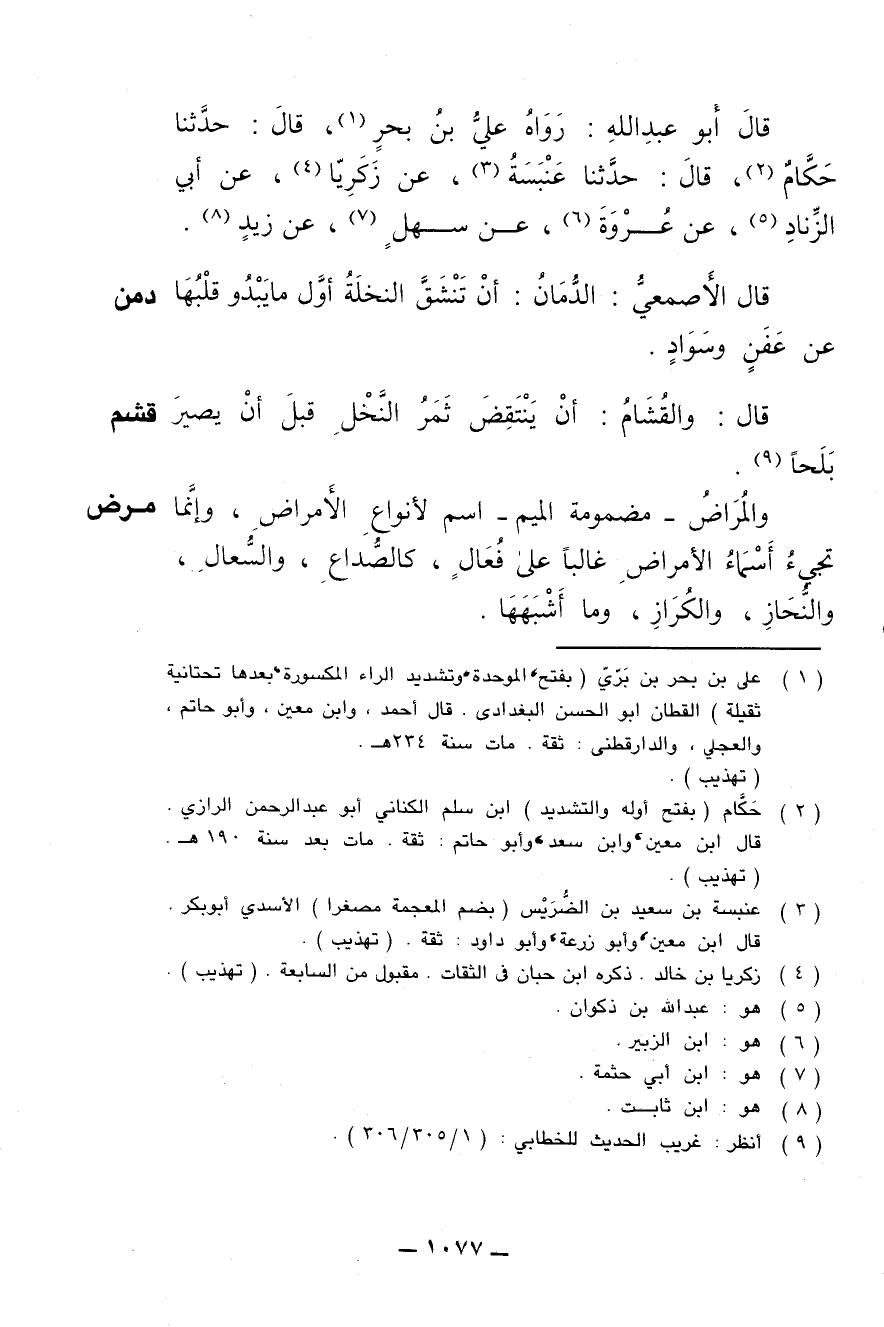 قالَ أَبو عبدِاللهِ : رَوَاهُ عليُّ بنُ بحرٍ (١)، قالَ : حدَّثنا
حَكَّامٌ (٢)، قالَ : حدَّثنا عَنْبَسَةُ (٣) ، عن زَكَرِيّا (٤) ، عن أبي
الزِّنادِ (٥) ، عن عُـــرْوَةَ (٦) ، عـــن ســـهلٍ (٧) ، عن زيدٍ (٨) .
قال الأَصمعيُّ : الدُّمَانُ : أنْ تَنْشَقَّ النخلَةُ أوَّل مايَبْدُو قلْبُهَا دمن
عن عَفَنٍ وسَوَادٍ .
قال : والقُشَامُ : أنْ يَنْتَقِضَ ثَمَرُ النَّخْلِ قبلَ أنْ يصيرَ قشم
بَلَحاً (٩) .
والمُرَاضُ ـ مضمومة الميم ـ اسم لأنواعِ الأَمراضِ ، وإنَّما مـرض
تجيءُ أَسْمَاءُ الأمراضِ غالباً على فُعَالٍ ، كالصُّداعِ ، والسُّعالِ ،
والنُّحَازِ ، والكُرَازِ ، وما أَشْبَهَهَا .
( ١ ) على بن بحر بن بَرّيّ ( بفتح الموحدة، وتشديد الراء المكسورة، بعدها تحتانية
ثقيلة ) القطان ابو الحسن البغدادى . قال أحمد ، وابن معين ، وأبو حاتم ،
والعجلي ، والدارقطنى : ثقة . مات سنة ٢٣٤هـ .
( تهذيب ) .
( ٢ ) حَكَّام ( بفتح أوله والتشديد ) ابن سلم الكناني أبو عبدالرحمن الرازي .
قال ابن معين، وابن سعد، وأبو حاتم : ثقة . مات بعد سنة ١٩٠ هـ .
( تهذيب ) .
( ٣ ) عنبسة بن سعيد بن الضُّرَيْس ( بضم المعجمة مصغرا ) الأسدي أبوبكر .
قال ابن معين، وأبو زرعة، وأبو داود : ثقة . ( تهذيب ) .
( ٤ ) زكريا بن خالد . ذكره ابن حبان فى الثقات . مقبول من السابعة . ( تهذيب ) .
( ٥ ) هو : عبدالله بن ذكوان .
( ٦ ) هو : ابن الزبير .
( ٧ ) هو : ابن أبي حثمة .
( ٨ ) هو : ابن ثابـت .
( ٩ ) أنظر : غريب الحديث للخطابي : ( ٣٠٦/٣٠٥/١ ) .
ــ ١٠٧٧ ــ